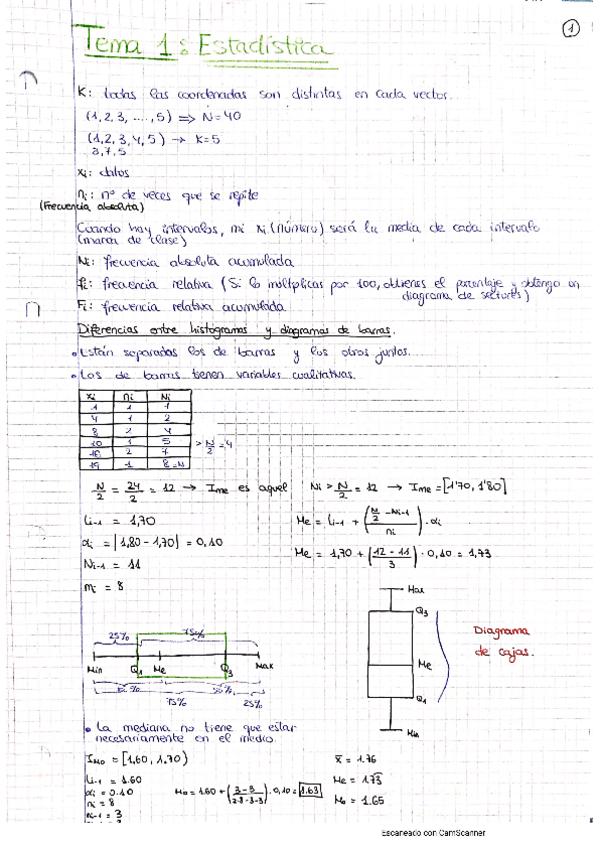 1
Tema 1: Estadística
K: todas las coordenadas son distintas en cada vector.
(1,2,3, ...., 5) => N=40
(1,2,3,4,5) → K=5
3,7,5
xi: datos
ni: nº de veces que se repite
(Frecuencia absoluta)
Cuando hay intervalos, mi xi (número) será la media de cada intervalo
(marca de clase)
Ni: frecuencia absoluta acumulada
fi: frecuencia relativa (Si lo multiplicas por 100, obtienes el porcentaje y obtengo un
diagrama de sectores)
Fi: frecuencia relativa acumulada
Diferencias entre histogramas y diagramas de barras.
• Están separadas los de barras y los otros juntos.
• Los de barras tienen variables cualitativas.
xi ni Ni
1 1 1
4 1 2
8 2 4
10 1 5 > N/2 = 4
18 2 7
19 1 8=N
N/2 = 24/2 = 12 → Ime es aquel Ni > N/2 = 12 → Ime = [1'70, 1'80]
Li-1 = 1,70 Me = Li-1 + (N/2 - Ni-1 / ni) · αi
αi = |1,80 - 1,70| = 0,10 Me = 1,70 + (12 - 11 / 3) · 0,10 = 1,73
Ni-1 = 11
ni = 8
Max
Q3
Me
Q1
Min
Diagrama
de cajas.
25% 75%
Min Q1 Me Q3 Max
50%
75% 25%
• La mediana no tiene que estar
necesariamente en el medio.
IMo = [1,60, 1,70) x̄ = 1.76
Li-1 = 1.60 Me = 1.73
αi = 0.10 Mo = 1.60 + (3-3 / 2·8-3-3) · 0,10 = 1.63 Mo = 1.65
ni = 8
ni-1 = 3
Escaneado con CamScanner